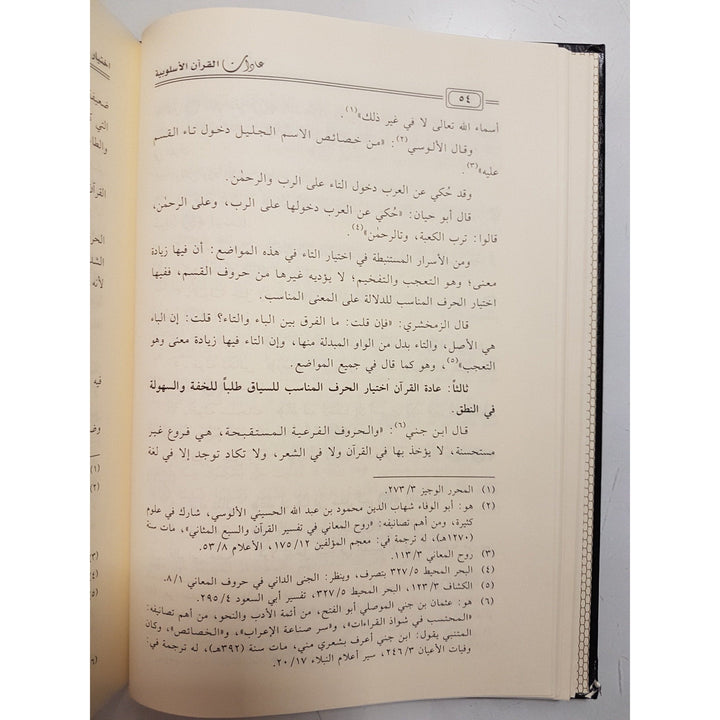 عادات القرآن الأسلوبية
٥٤
أسماء الله تعالى لا في غير ذلك»(١).
وقال الألوسي(٢): «من خصائص الاسم الجليل دخول تاء القسم
عليه»(٣).
وقد حُكي عن العرب دخول التاء على الرب والرحمٰن.
قال أبو حيان: «حُكي عن العرب دخولها على الرب، وعلى الرحمٰن،
قالوا: ترب الكعبة، وتالرحمٰن»(٤).
ومن الأسرار المستنبطة في اختيار التاء في هذه المواضع: أن فيها زيادة
معنى؛ وهو التعجب والتفخيم؛ لا يؤديه غيرها من حروف القسم، ففيها
اختيار الحرف المناسب للدلالة على المعنى المناسب.
قال الزمخشري: «فإن قلت: ما الفرق بين الباء والتاء؟ قلت: إن الباء
هي الأصل، والتاء بدل من الواو المبدلة منها، وإن التاء فيها زيادة معنى وهو
التعجب»(٥)، وهو كما قال في جميع المواضع.
ثالثاً: عادة القرآن اختيار الحرف المناسب للسياق طلباً للخفة والسهولة
في النطق.
قال ابن جني(٦): «والحروف الفرعية المستقبحة، هي فروع غير
مستحسنة، لا يؤخذ بها في القرآن ولا في الشعر، ولا تكاد توجد إلا في لغة
(١) المحرر الوجيز ٢٧٣/٣.
(٢) هو: أبو الوفاء شهاب الدين محمود بن عبد الله الحسيني الألوسي، شارك في علوم
كثيرة، ومن أهم تصانيفه: «روح المعاني في تفسير القرآن والسبع المثاني»، مات سنة
(١٢٧٠هـ)، له ترجمة في: معجم المؤلفين ١٧٥/١٢، الأعلام ٥٣/٨.
(٣) روح المعاني ١١٣/٣.
(٤) البحر المحيط ٣٢٧/٥ بتصرف، وينظر: الجنى الداني في حروف المعاني ٨/١.
(٥) الكشاف ١٢٣/٣، البحر المحيط ٣٢٧/٥، تفسير أبي السعود ٢٩٥/٤.
(٦) هو: عثمان بن جني الموصلي أبو الفتح، من أئمة الأدب والنحو، من أهم تصانيفه:
«المحتسب في شواذ القراءات»، و«سر صناعة الإعراب»، و«الخصائص»، وكان
المتنبي يقول: ابن جني أعرف بشعري مني، مات سنة (٣٩٢هـ)، له ترجمة في:
وفيات الأعيان ٢٤٦/٣، سير أعلام النبلاء ٢٠/١٧.